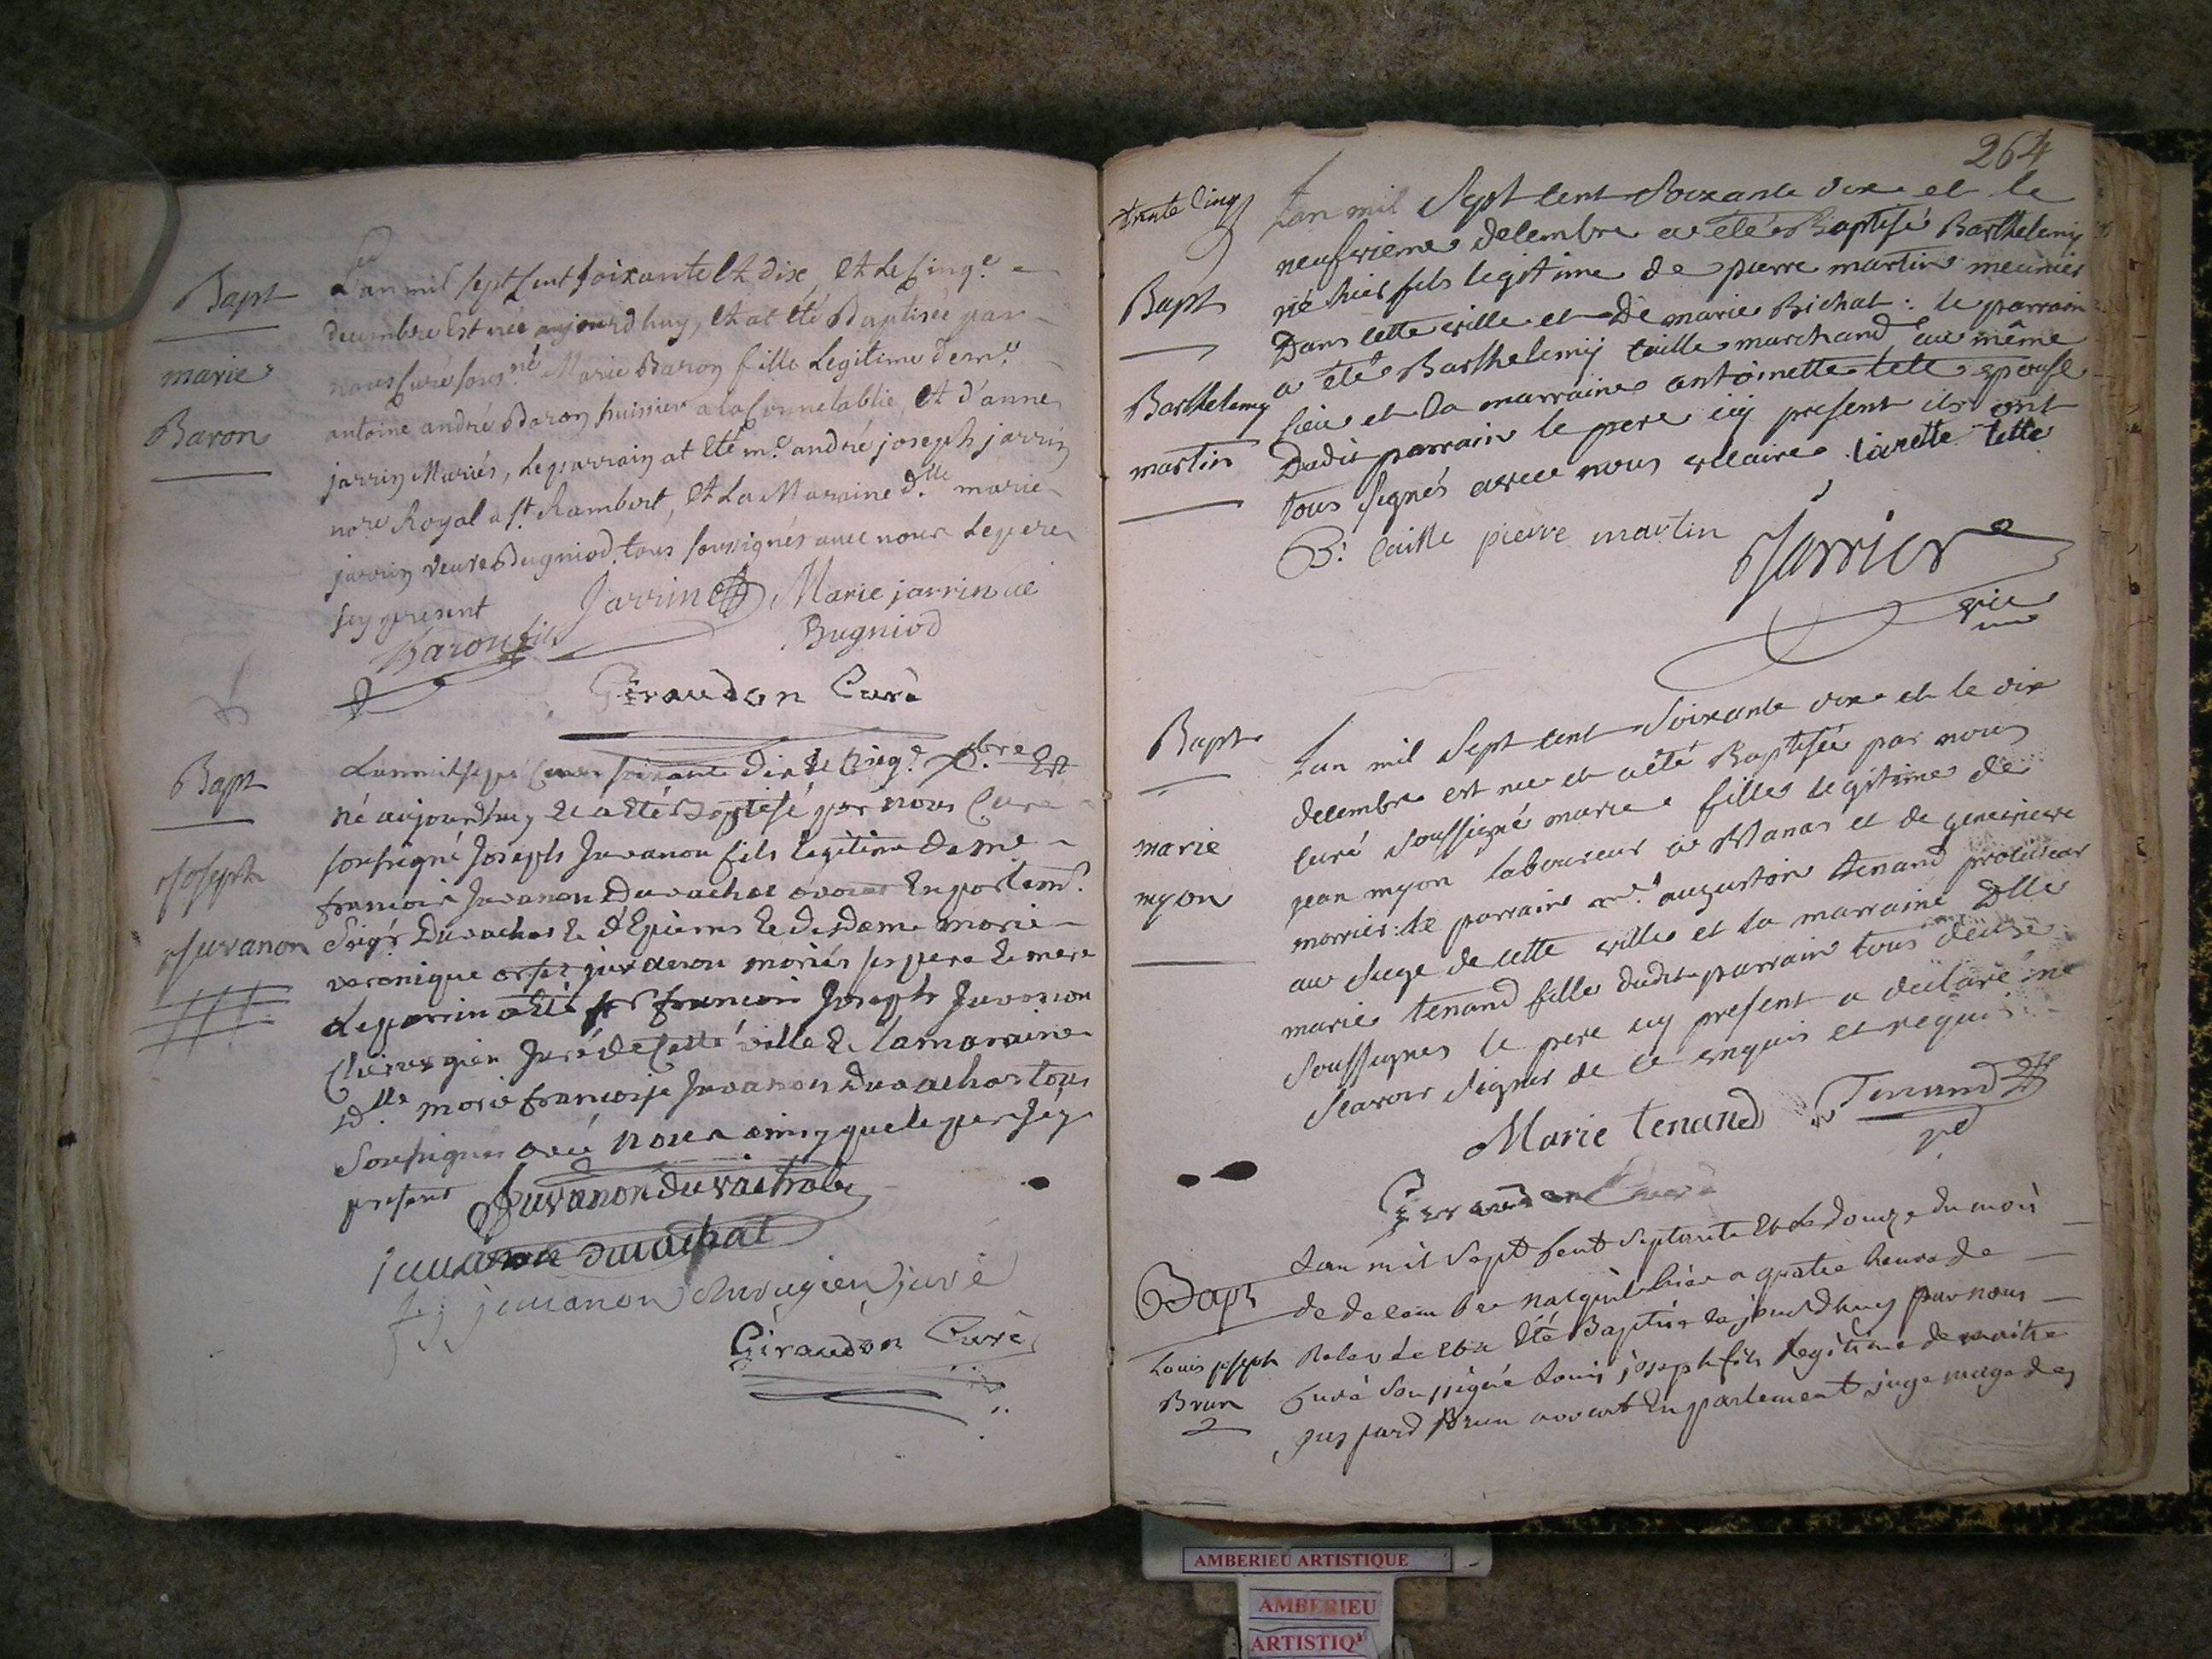 Bapt
marie
Baron
L'an mil sept Cent soixante et dix, et Le Cinq.e
decembre Est née aujourdhuy, et at été Baptisée par
nous Curé sous.né Marie Baron fille Legitime de m.e
antoine andré Baron huissier a la Connetablie, et d'anne
jarrin Mariés, Le parrain at été m.e andré joseph jarrin
no.re Royal a st. Rambert, et La Maraine d.lle marie
jarrin veuve Bugniod, tous soussignés avec nous Le pere
icy present
Baron fils
Jarrin
Marie jarrin
Bugniod
Giraudon Curé
Bapt
joseph
juvanon
L'an mil sept Cent soixante Dix Le Cinq.e Xbre Est
né aujourd'huy et a été Baptisé par nous Curé
soussigné Joseph Juvanon fils legitime de me
francois Juvanon Duvachat avocat En parlem.t
Seig.r Duvachat & d'Epierre & de Dame marie
veronique orset juvanon mariés ses pere & mere
Le parrin a été sr francois Joseph Juvanon
Chirurgien Juré de Cette ville & la maraine
D.lle marie francoise Juvanon Duvachat tous
Soussignés avec nous ainsy que le pere icy
present
Juvanon duvachat
juvanon duvachat
f. j. juvanon chirurgien juré
Giraudon Curé
264
trente Cinq
Bapt
Barthelemy
martin
L'an mil Sept cent Soixante dix et le
neufvieme decembre a été Baptisé Barthelemy
né hier fils legitime de pierre martin meunier
Dans cette ville et De marie Bichat : le parrain
a été Barthelemy caille marchand au même
lieu et la marraine antoinette tete epouse
Dudit parrain le pere icy present ils ont
tous signés avec nous vicaire
tette
B. Caille pierre martin
Jarrier
vic
Bapt
marie
myon
L'an mil Sept cent Soixante dix et le dix
decembre est née et a été Baptisée par nous
Curé Soussigné marie fille legitime de
jean myon laboureur a et de genevieve
le parrain m.e augustin tenand procureur
au siege de cette ville et la marraine Dlle
marie tenand fille dudit parrain tous deux
Soussignés le pere icy present a declaré ne
Scavoir Signer de ce enquis et requis
Marie tenand
Tenand
Giraudon Curé
Bapt
Louis joseph
Brun
L'an mil Sept Cent Septante et Le Douze du mois
de decembre naquit hier a quatre heures de
Relevée et a été Baptisé aujourdhuy par nous
Curé Soussigné Louis joseph fils Legitime de maitre
gaspard Brun avocat En parlement juge mage de
AMBERIEU ARTISTIQUE
AMBERIEU
ARTISTIQ